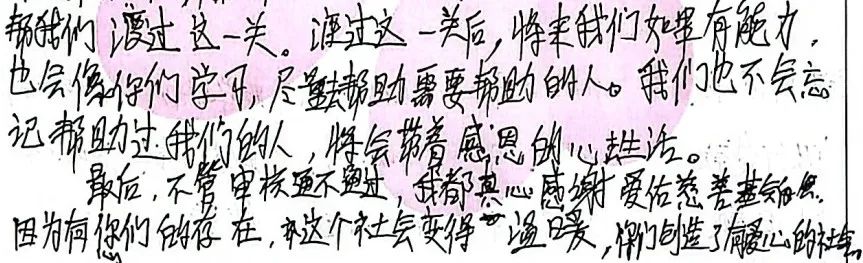 帮我们渡过这一关。渡过这一关后,将来我们如果有能力,
也会像你们学习,尽量去帮助需要帮助的人。我们也不会忘
记帮助过我们的人,将会带着感恩的心去生活。
最后,不管审核通不通过,我都真心感谢爱佑慈善基金会
因为有你们的存在,这个社会变得温暖,你们创造了有爱心的社会